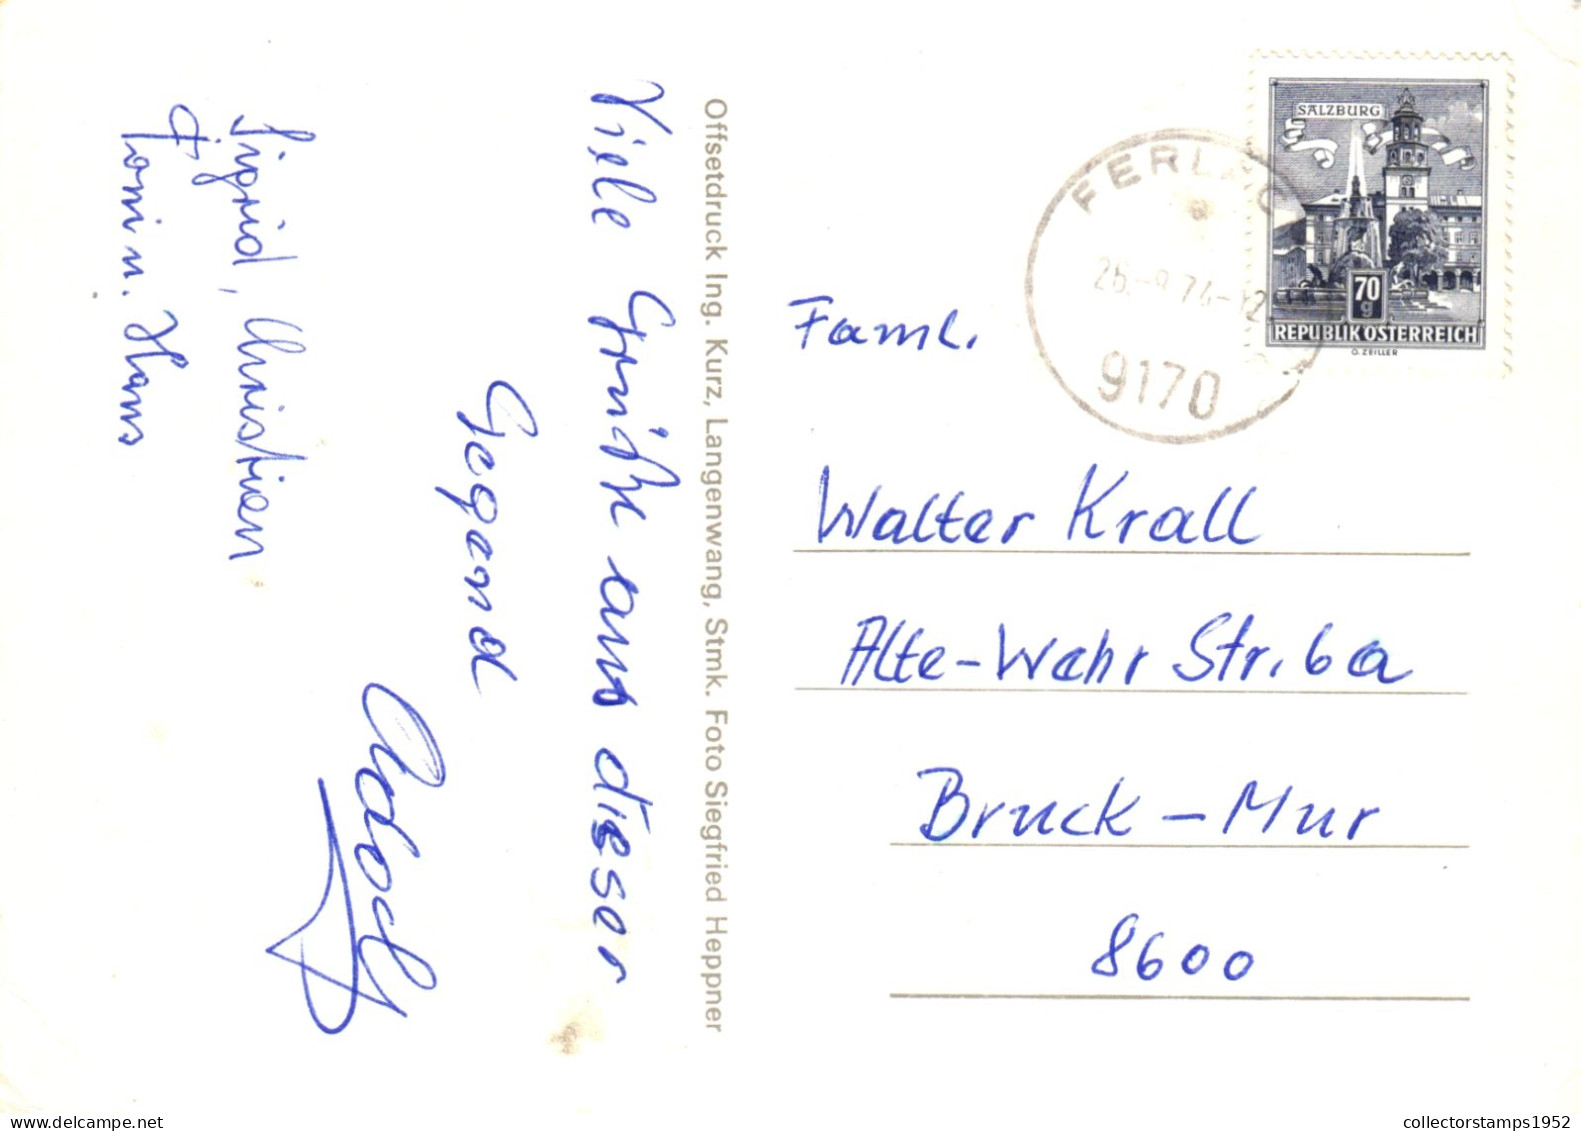 Viele Grüße aus dieser
Gegend
Adolf
Sigrid, Christian
u. Hans
Offsetdruck Ing. Kurz, Langenwang, Stmk. Foto Siegfried Heppner
SALZBURG
70
g
REPUBLIK ÖSTERREICH
O. ZEILLER
9170
Faml.
Walter Krall
Alte-Wehr Str. 6a
Bruck - Mur
8600
collectorstamps1952